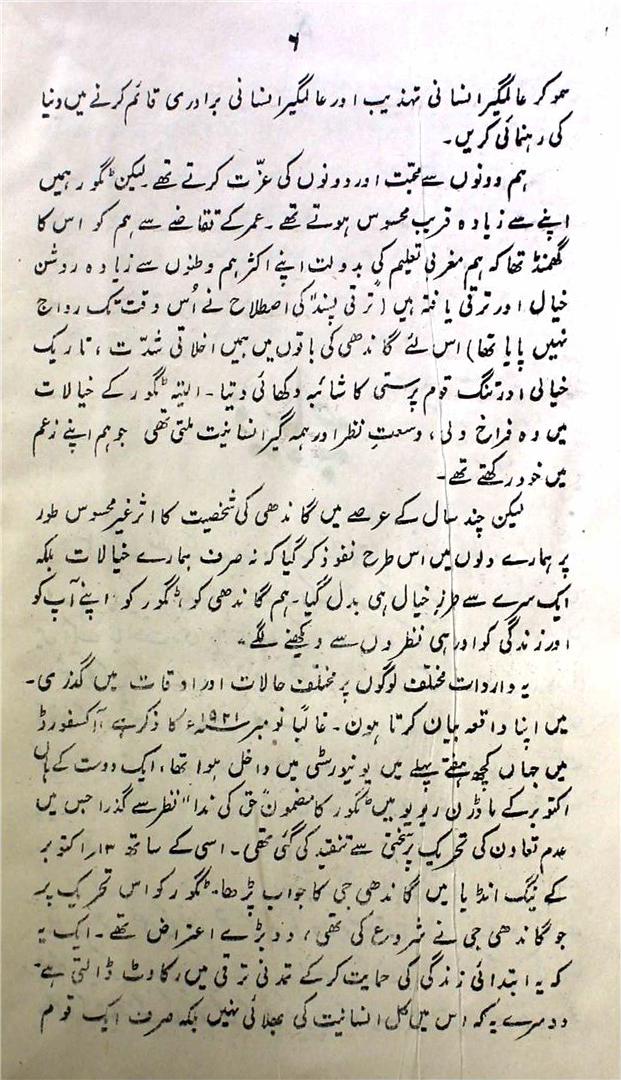 ۶
سمو کر عالمگیر انسانی تہذیب اور عالمگیر انسانی برادری قائم کرنے میں دنیا
کی رہنمائی کریں۔
ہم دونوں سے محبت اور دونوں کی عزّت کرتے تھے۔ لیکن ٹگور ہمیں
اپنے سے زیادہ قریب محسوس ہوتے تھے۔ عمر کے تقاضے سے ہم کو اس کا
گھمنڈ تھا کہ ہم مغربی تعلیم کی بدولت اپنے اکثر ہم وطنوں سے زیادہ روشن
خیال اور ترقی یافتہ ہیں ("ترقی پسند" کی اصطلاح نے اُس وقت تک رواج
نہیں پایا تھا) اس لئے گاندھی کی باتوں میں ہمیں اخلاقی شدّت، تاریک
خیالی اور تنگ قوم پرستی کا شائبہ دکھائی دیتا۔ البتہ ٹگور کے خیالات
میں وہ فراخ دلی، وسعتِ نظر اور ہمہ گیر انسانیت ملتی تھی جو ہم اپنے زعم
میں خود رکھتے تھے۔
لیکن چند سال کے عرصے میں گاندھی کی شخصیت کا اثر غیر محسوس طور
پر ہمارے دلوں میں اس طرح نفوذ کر گیا کہ نہ صرف ہمارے خیالات بلکہ
ایک سرے سے طرزِ خیال ہی بدل گیا۔ ہم گاندھی کو، ٹگور کو اپنے آپ کو
اور زندگی کو اور ہی نظروں سے دیکھنے لگے۔
یہ واردات مختلف لوگوں پر مختلف حالات اور اوقات میں گذری۔
میں اپنا واقعہ بیان کرتا ہوں۔ غالباً نومبر ۱۹۲۱ء کا ذکر ہے آکسفورڈ
میں جہاں کچھ ہفتے پہلے میں یونیورسٹی میں داخل ہوا تھا، ایک دوست کے ہاں
اکتوبر کے ماڈرن ریویو میں ٹگور کا مضمون "حق کی ندا" نظر سے گذرا جس میں
عدم تعاون کی تحریک پر سختی سے تنقید کی گئی تھی۔ اسی کے ساتھ ۱۳ اکتوبر
کے ینگ انڈیا میں گاندھی جی کا جواب پڑھا۔ ٹگور کو اس تحریک پر
جو گاندھی جی نے شروع کی تھی، دو بڑے اعتراض تھے۔ ایک یہ
کہ یہ ابتدائی زندگی کی حمایت کرکے تمدنی ترقی میں رکاوٹ ڈالتی ہے۔
دوسرے یہ کہ اس میں کل انسانیت کی بھلائی نہیں بلکہ صرف ایک قوم